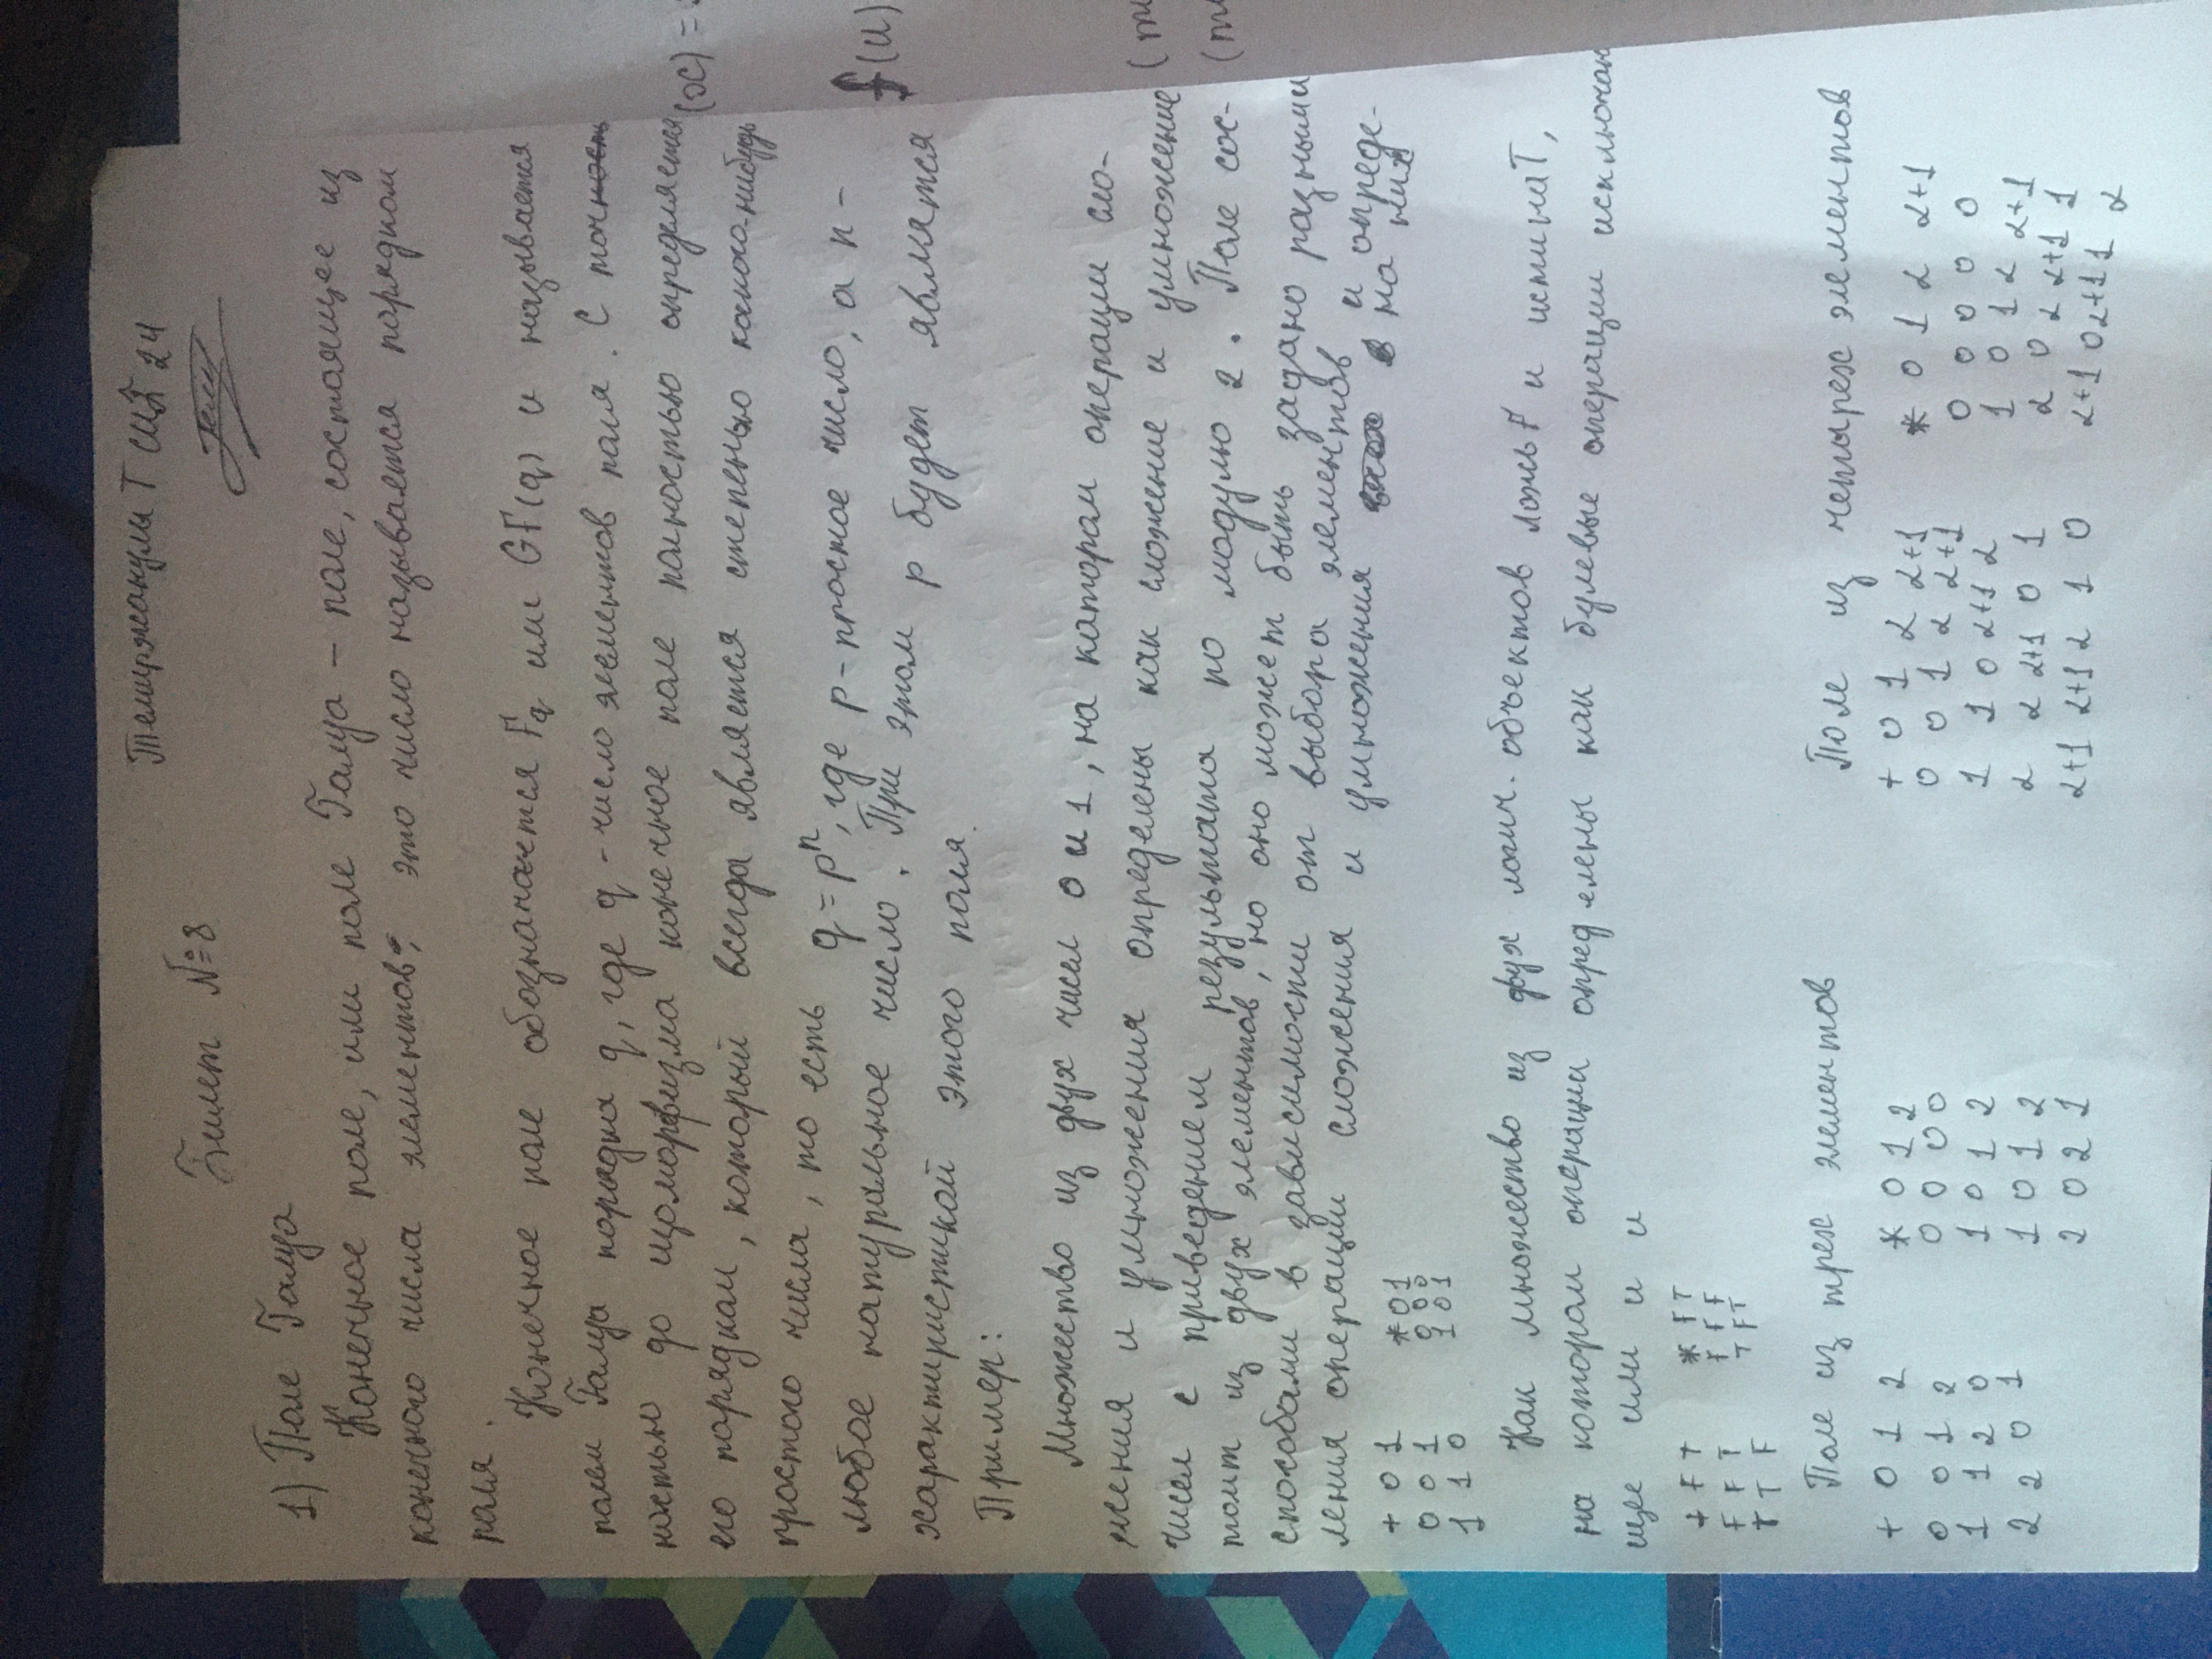 Темиржанулы Т СИБ 24
Билет №8
1) Поле Галуа
Конечное поле, или поле Галуа – поле, состоящее из
конечного числа элементов; это число называется порядком
поля.
Конечное поле обозначается Fq или GF(q) и называется
полем Галуа порядка q, где q - число элементов поля. С точ
ностью до изоморфизма конечное поле полностью определяется
его порядком, который всегда является степенью какого-нибудь
простого числа, то есть q=pⁿ, где p - простое число, а n -
любое натуральное число. При этом p будет являтся
характиристикой этого поля.
Пример:
Множество из двух чисел 0 и 1, на катором операции сло-
жения и умножения определены как сложение и умножение
чисел с приведением результата по модулю 2. Поле сос-
тоит из двух элементов, но оно может быть задано разными
способами в зависимости от выбора элементов и опреде-
ления операций сложения и умножения на них
+ 0 1 * 0 1
0 0 1 0 0 0
1 1 0 1 0 1
Как множество из двух логич. объектов ложь F и истина T,
на котором операции определены как булевые операции исключаю
щее или и и
+ F T * F T
F F T F F F
T T F T F T
Поле из трех элементов Поле из четырех элементов
+ 0 1 2 * 0 1 2 + 0 1 α α+1 * 0 1 α α+1
0 0 1 2 0 0 0 0 0 0 1 α α+1 0 0 0 0 0
1 1 2 0 1 0 1 2 1 1 0 α+1 α 1 0 1 α α+1
2 2 0 1 1 0 1 2 α α α+1 0 1 α 0 α α+1 1
2 0 2 1 α+1 α+1 α 1 0 α+1 0 α+1 1 α
(x) =
f(u)